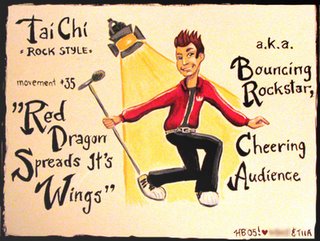 Tai Chi
• ROCK STYLE •
movement #35
"Red
Dragon
Spreads It's
Wings"
a.k.a.
Bouncing
Rockstar,
Cheering
Audience
HB 05! ♥
& TIIA